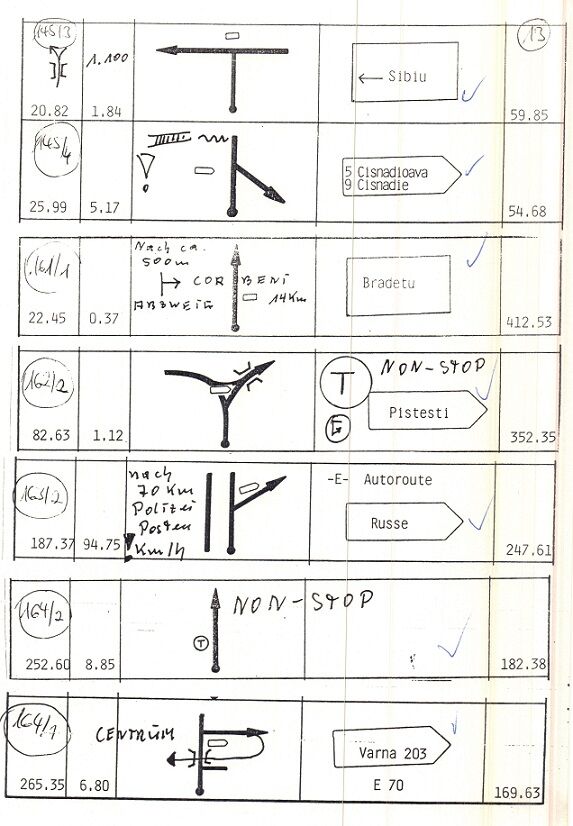 145/3
1.100
13
← Sibiu
20.82 1.84
59.85
145/4
!
5 Cisnadioava
9 Cisnadie
25.99 5.17
54.68
161/1
Nach ca.
500m
CORBENI
ABZWEIG 14Km
Bradetu
22.45 0.37
412.53
162/2
T NON-STOP
Pistesti
G
82.63 1.12
352.35
163/2
nach
70 Km
Polizei
Posten
Km/h
-E- Autoroute
Russe
187.37 94.75
247.61
164/2
NON-STOP
T
252.60 8.85
182.38
164/1
CENTRŪM
Varna 203
E 70
265.35 6.80
169.63